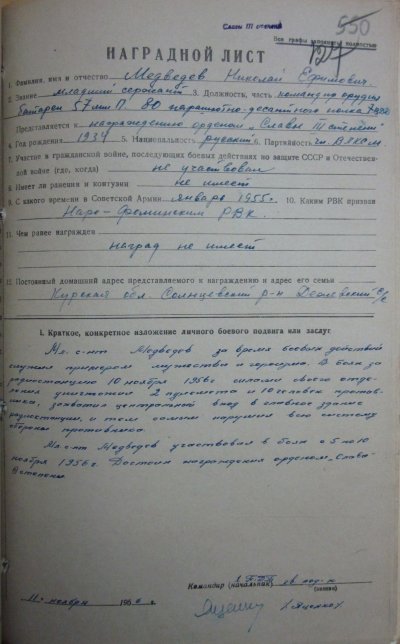 Славы III степени
550
Все графы заполнять полностью
124
НАГРАДНОЙ ЛИСТ
1. Фамилия, имя и отчество Медведев Николай Ефимович
2. Звание младший сержант 3. Должность, часть командир орудия
батареи 57 мм П. 80 парашютно-десантного полка 7 вдд
Представляется к награждению орденом „Славы III степени“
4. Год рождения 1934 5. Национальность русский 6. Партийность чл. ВЛКСМ
7. Участие в гражданской войне, последующих боевых действиях по защите СССР и Отечествен-
ной войне (где, когда) не участвовал
8. Имеет ли ранения и контузии не имеет
9. С какого времени в Советской Армии январь 1955 г. 10. Каким РВК призван
Наро-Фоминским РВК
11. Чем ранее награжден
наград не имеет
12. Постоянный домашний адрес представляемого к награждению и адрес его семьи
Курская обл. Солнцевский р-н с/с
I. Краткое, конкретное изложение личного боевого подвига или заслуг
Мл. с-нт Медведев за время боевых действий
служил примером мужества и героизма. В боях за
радиостанцию 10 ноября 1956 г силами своего отде-
ления уничтожил 2 пулемета и 10 человек против-
ника, захватил центральный вход в главное здание
радиостанции, и тем самым нарушил всю систему
обороны противника.
Мл. с-нт Медведев участвовал в боях с 5 по 10
ноября 1956 г. Достоин награждения орденом „Слава
III степени.
Командир (начальник) гв. подп-к
(звание)
11 ноября 1956 г.